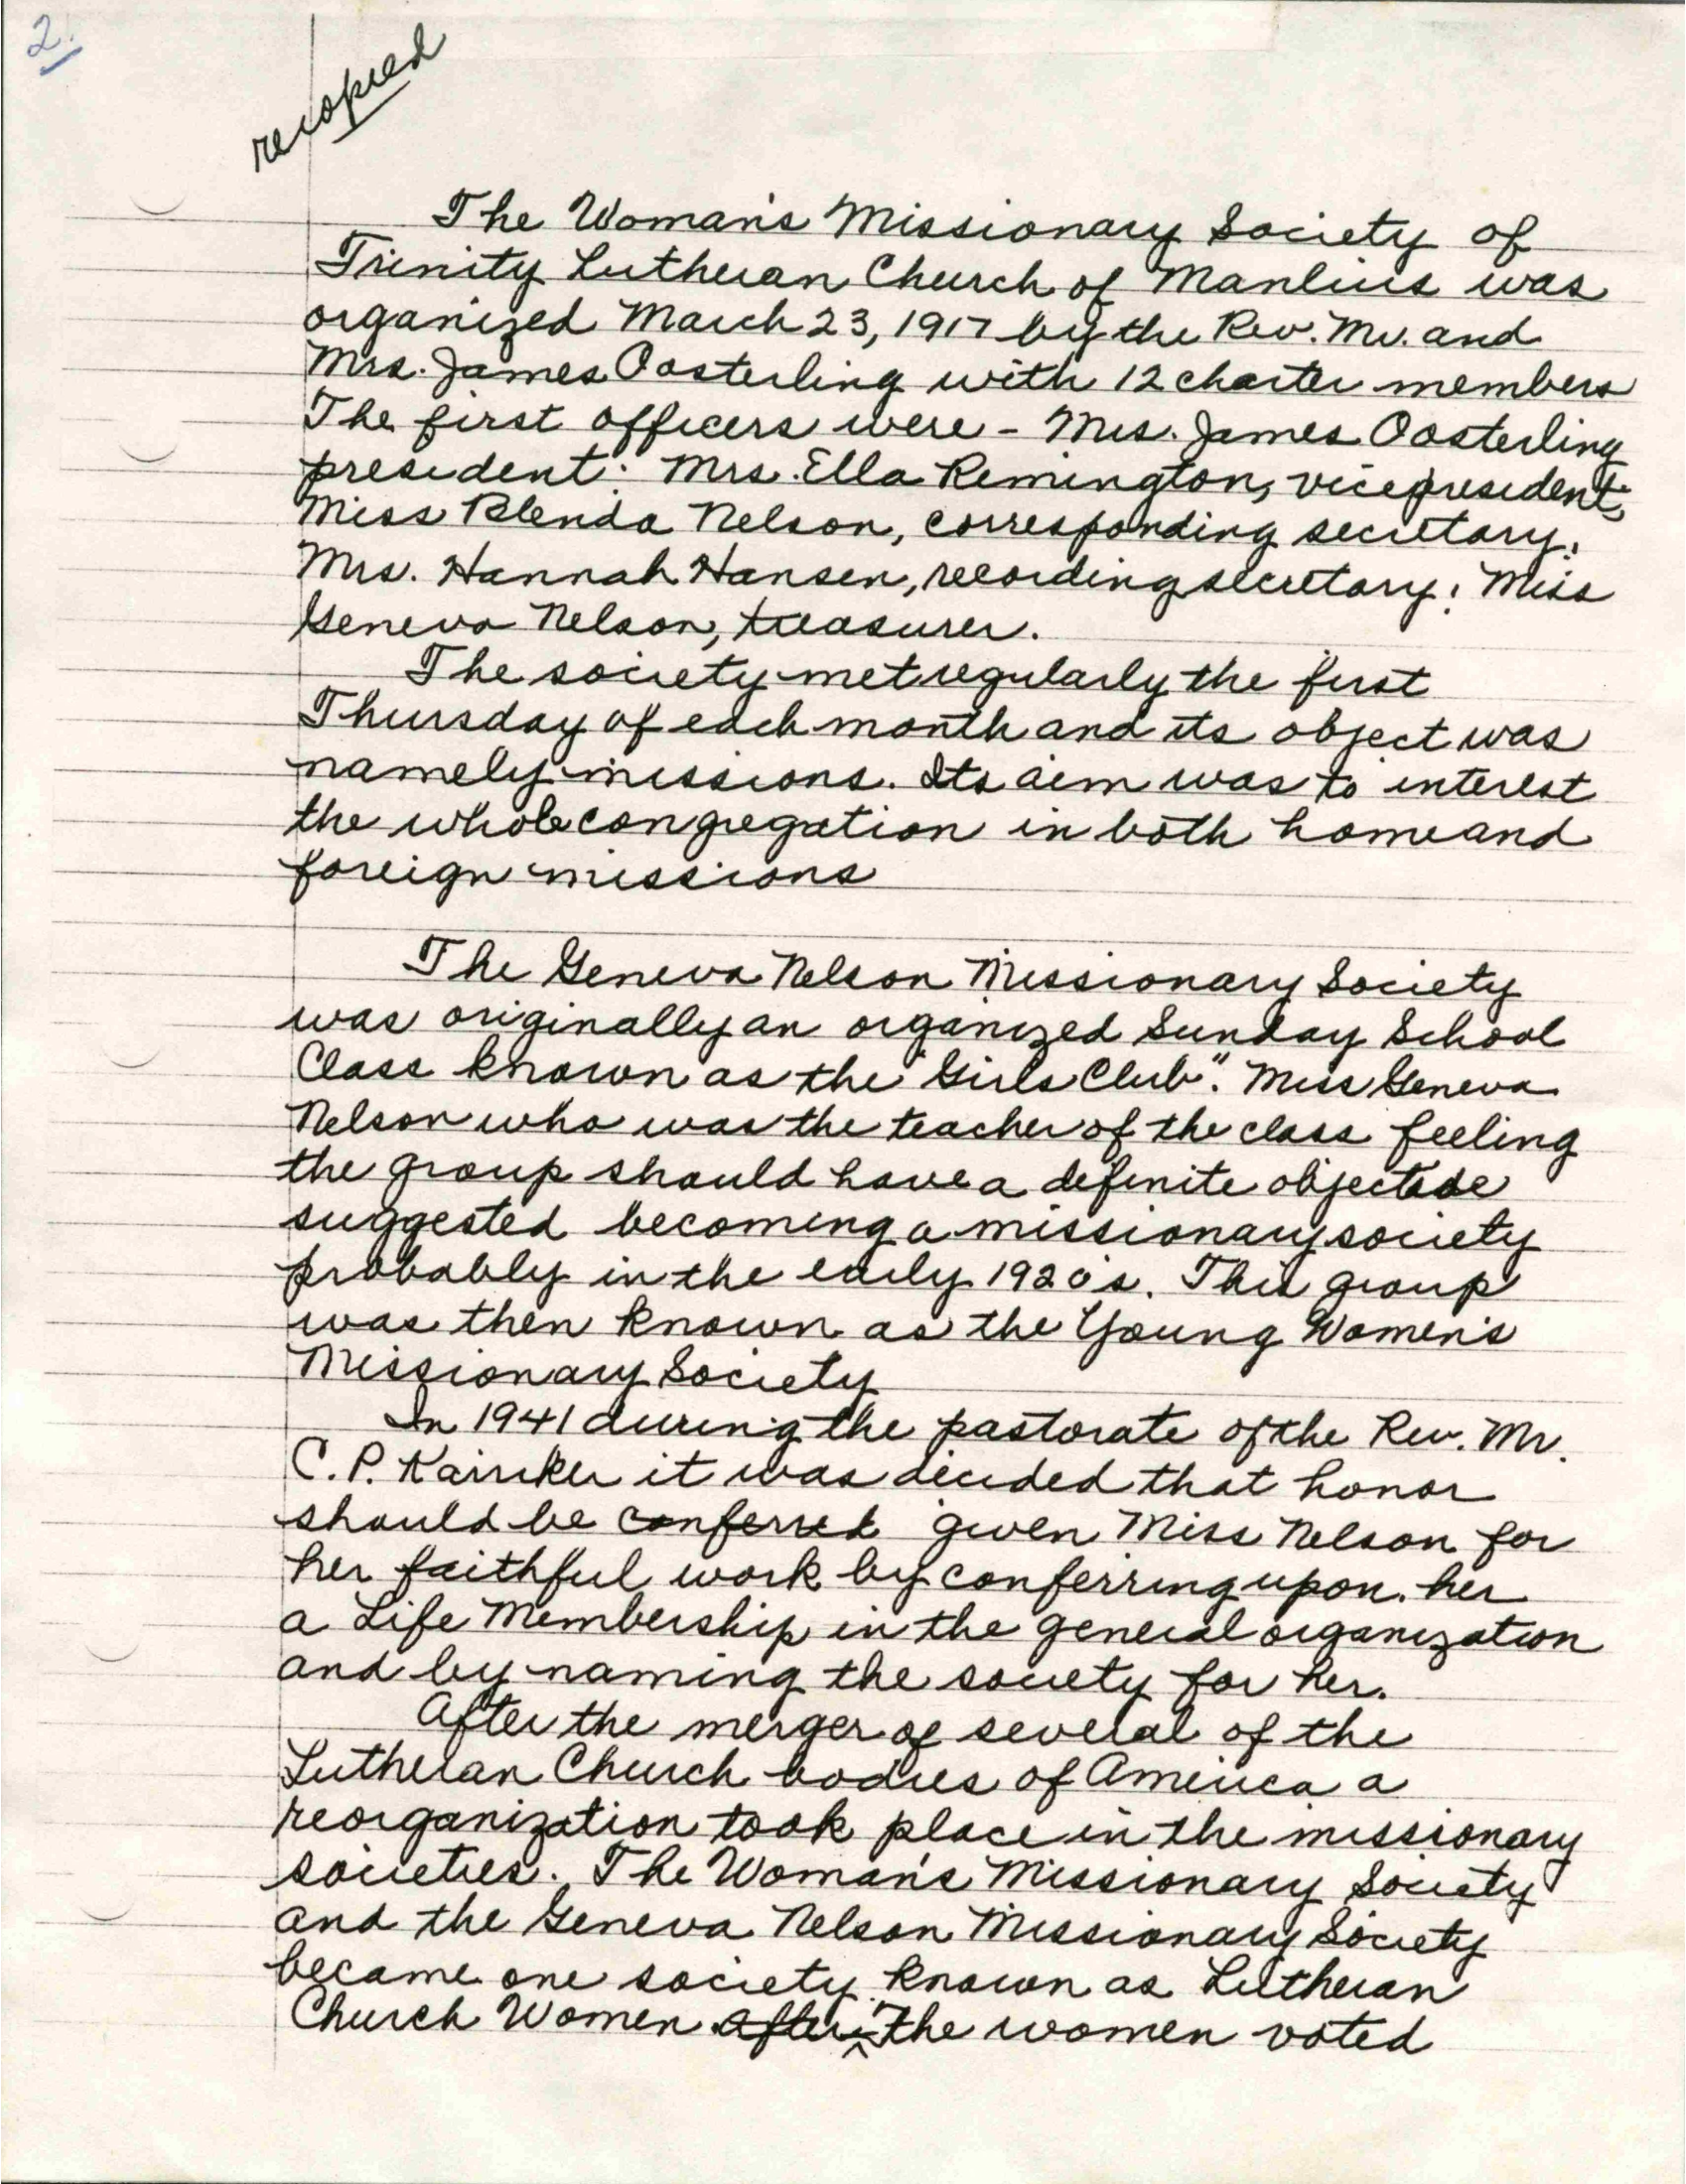 2.
recopied
The Woman's Missionary Society of
Trinity Lutheran Church of Manlius was
organized March 23, 1917 by the Rev. Mr. and
Mrs. James Oosterling with 12 charter members
The first officers were - Mrs. James Oosterling
president; Mrs. Ella Remington, vice president;
Miss Blenda Nelson, corresponding secretary;
Mrs. Hannah Hansen, recording secretary; Miss
Geneva Nelson, treasurer.
The society met regularly the first
Thursday of each month and its object was
namely missions. Its aim was to interest
the whole congregation in both home and
foreign missions
The Geneva Nelson Missionary Society
was originally an organized Sunday School
Class known as the "Girls Club". Miss Geneva
Nelson who was the teacher of the class feeling
the group should have a definite objective
suggested becoming a missionary society
probably in the early 1920's. This group
was then known as the Young Women's
Missionary Society
In 1941 during the pastorate of the Rev. Mr.
C. P. it was decided that honor
should be conferred given Miss Nelson for
her faithful work by conferring upon her
a Life Membership in the general organization
and by naming the society for her.
After the merger of several of the
Lutheran Church bodies of America a
reorganization took place in the missionary
societies. The Woman's Missionary Society
and the Geneva Nelson Missionary Society
became one society known as Lutheran
Church Women. After The women voted